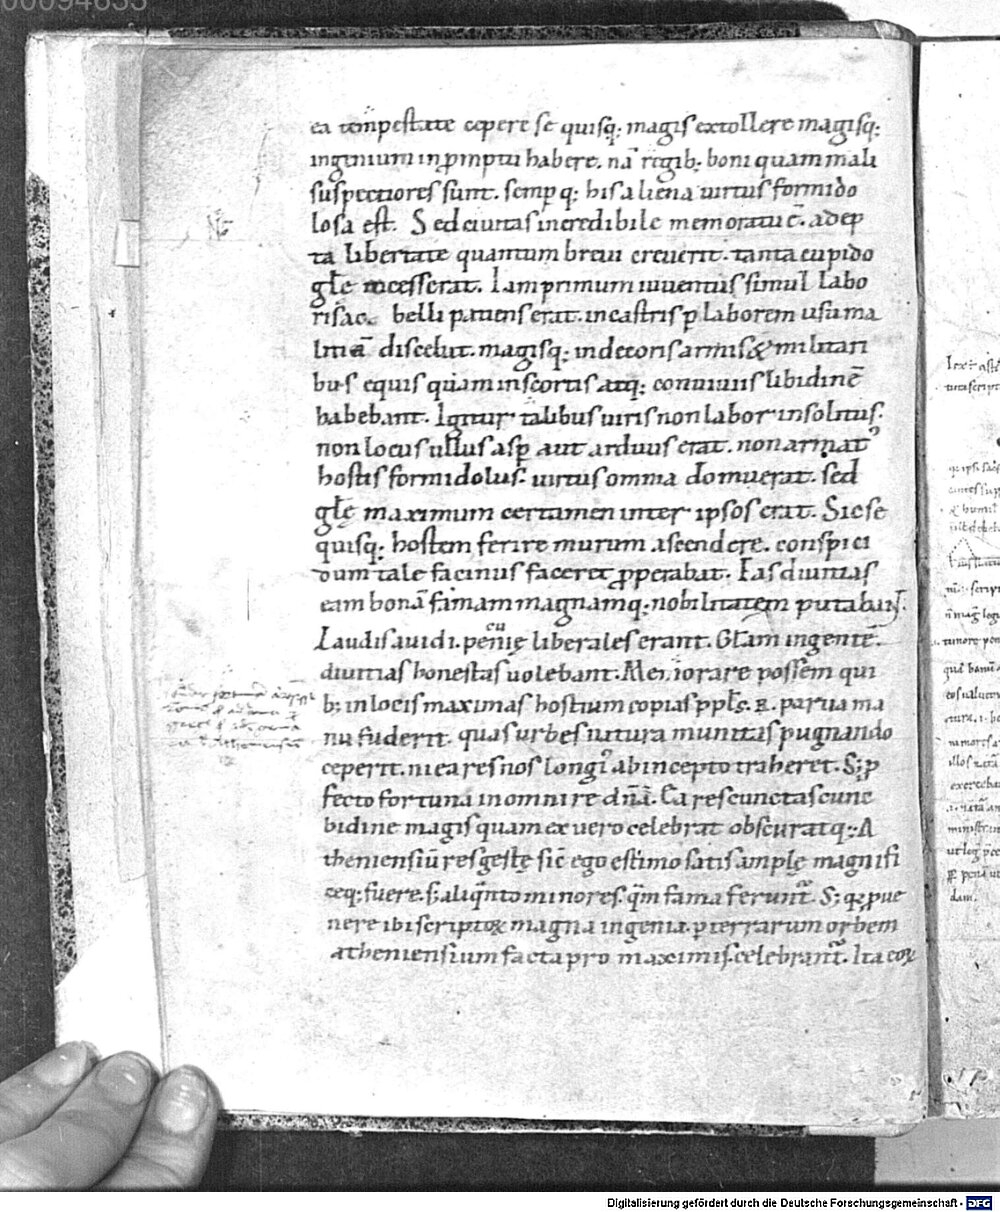 00094635
ea tempestate cepere se quisq; magis extollere magisq;
ingenium inpromptu habere. nā regib; boni quam mali
suspectiores sunt. semp q; his aliena uirtus formido
losa est. Sed ciuitas incredibile memoratu ē. adep
ta libertate quantum breui creuerit. tanta cupido
glē incesserat. Iam primum iuuentus simul labo
ris ac belli patiens erat. incastris p laborem usu ma
litiā discebat. magisq; indecoris armis & militari
bus equis quam inscortis atq; conuiuiis libidinē
habebant. Igitur talibus uiris non labor insolitus.
non locus ullus asp aut arduus erat. non armat᾿
hostis formidolus. uirtus omnia domuerat. sed
glę maximum certamen inter ipsos erat. Sic se
quisq; hostem ferire murum ascendere. conspici
dum tale facinus faceret pperabat. Eas diuitias
eam bonā famam magnamq; nobilitatem putabant.
Laudis auidi. pecunię liberales erant. Glām ingentē.
diuitias honestas uolebant. Memorare possem qui
b; in locis maximas hostium copias pplś. R. parua ma
nu fuderit. quas urbes natura munitas pugnando
ceperit. ni ea res nos longi᾿ ab incepto traheret. S; p
fecto fortuna in omni re dnā. Ea res cunctas
bidine magis quam ex uero celebrat obscuratq; A
theniensiū res gestę sic̄ ego estimo satis amplę magnifi
ceq; fuere. s; aliqnto minores. qm fama ferunt̄. S; q; pue
nere ibi scriptoꝝ magna ingenia. p terrarum orbem
atheniensium facta pro maximis. celebrant̄. Ita eoꝝ
Digitalisierung gefördert durch die Deutsche Forschungsgemeinschaft - DFG